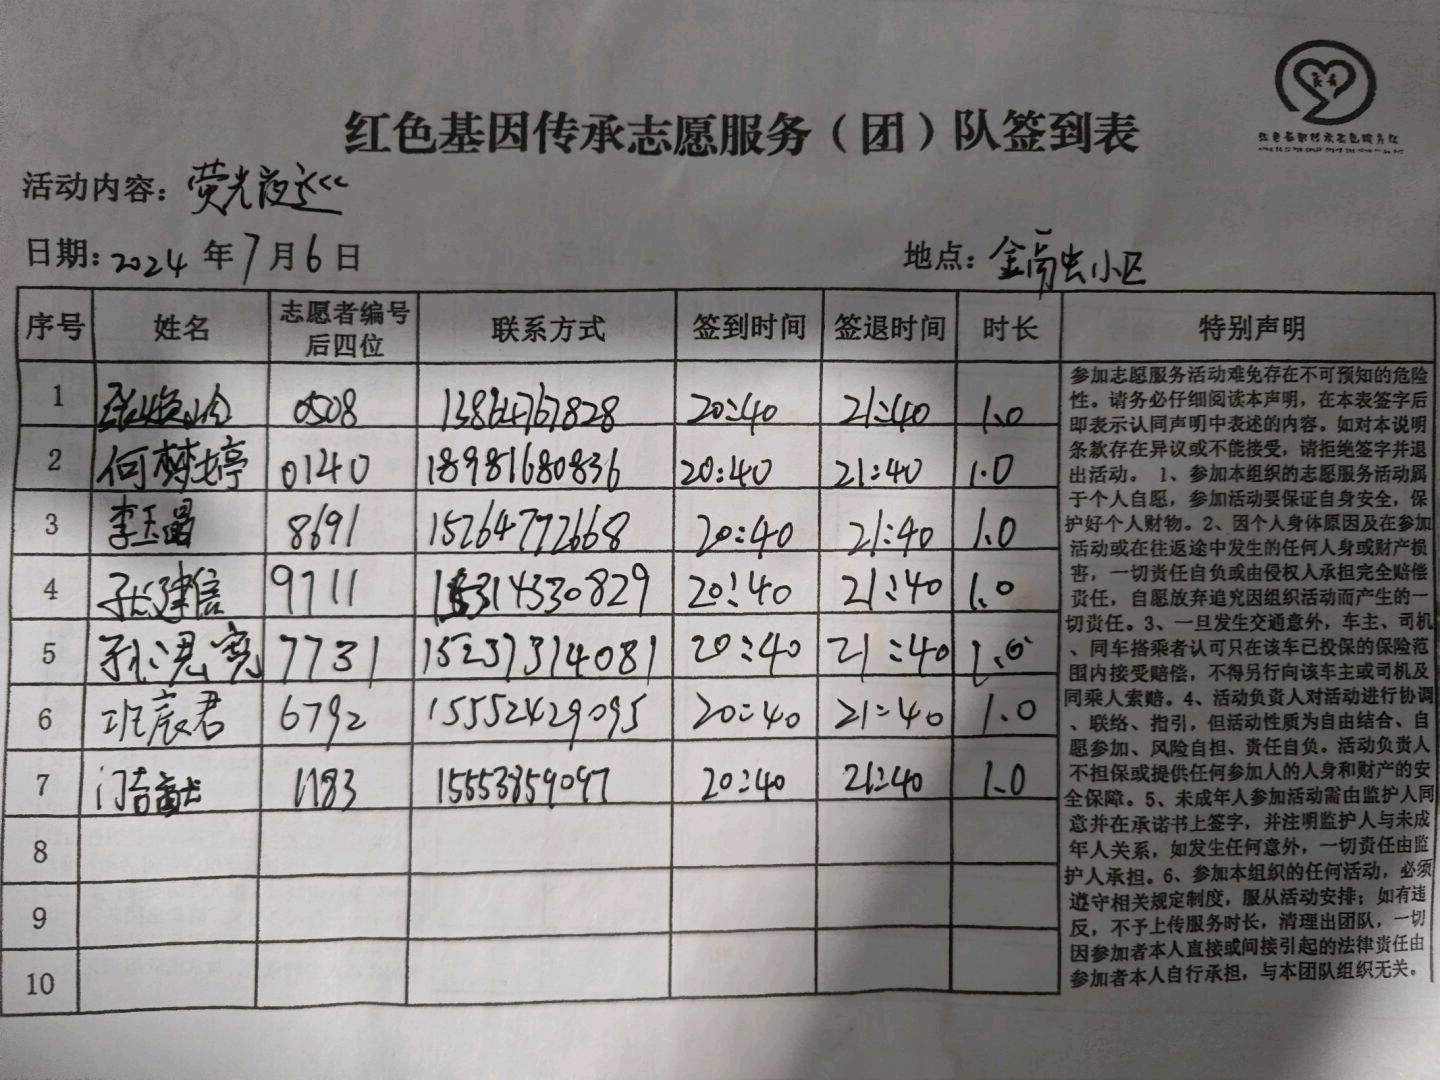 红色基因传承志愿服务（团）队签到表
活动内容：荧光夜巡
日期：2024年7月6日 地点：金 小区
序号 姓名 志愿者编号后四位 联系方式 签到时间 签退时间 时长 特别声明
1 0508 13864767828 20:40 21:40 1.0
2 何梦婷 0140 18981680836 20:40 21:40 1.0
3 李玉晶 8691 15264772668 20:40 21:40 1.0
4 孙建信 9711 15314330829 20:40 21:40 1.0
5 孙 宽 7731 15237314081 20:40 21:40 1.0
6 班辰君 6792 15552429095 20:40 21:40 1.0
7 门吉 1183 15553859097 20:40 21:40 1.0
8
9
10
参加志愿服务活动难免存在不可预知的危险
性。请务必仔细阅读本声明，在本表签字后
即表示认同声明中表述的内容。如对本说明
条款存在异议或不能接受，请拒绝签字并退
出活动。 1、参加本组织的志愿服务活动属
于个人自愿，参加活动要保证自身安全，保
护好个人财物。2、因个人身体原因及在参加
活动或在往返途中发生的任何人身或财产损
害，一切责任自负或由侵权人承担完全赔偿
责任，自愿放弃追究因组织活动而产生的一
切责任。3、一旦发生交通意外，车主、司机
、同车搭乘者认可只在该车已投保的保险范
围内接受赔偿，不得另行向该车主或司机及
同乘人索赔。4、活动负责人对活动进行协调
、联络、指引，但活动性质为自由结合、自
愿参加、风险自担、责任自负。活动负责人
不担保或提供任何参加人的人身和财产的安
全保障。5、未成年人参加活动需由监护人同
意并在承诺书上签字，并注明监护人与未成
年人关系，如发生任何意外，一切责任由监
护人承担。6、参加本组织的任何活动，必须
遵守相关规定制度，服从活动安排；如有违
反，不予上传服务时长，清理出团队，一切
因参加者本人直接或间接引起的法律责任由
参加者本人自行承担，与本团队组织无关。